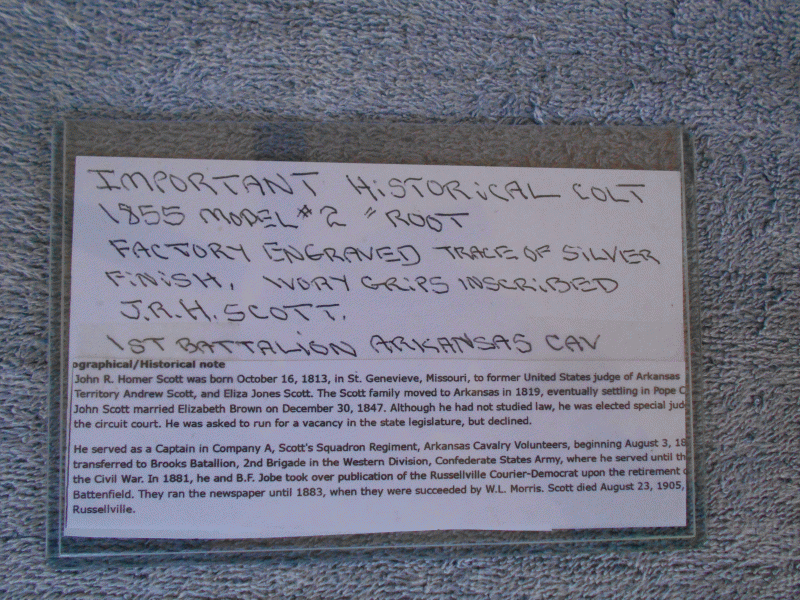 IMPORTANT HISTORICAL COLT
1855 MODEL #2 "ROOT
FACTORY ENGRAVED TRACE OF SILVER
FINISH, IVORY GRIPS INSCRIBED
J.R.H. SCOTT.
1ST BATTALION ARKANSAS CAV
ographical/Historical note
John R. Homer Scott was born October 16, 1813, in St. Genevieve, Missouri, to former United States judge of Arkansas
Territory Andrew Scott, and Eliza Jones Scott. The Scott family moved to Arkansas in 1819, eventually settling in Pope C
John Scott married Elizabeth Brown on December 30, 1847. Although he had not studied law, he was elected special jud
the circuit court. He was asked to run for a vacancy in the state legislature, but declined.
He served as a Captain in Company A, Scott's Squadron Regiment, Arkansas Cavalry Volunteers, beginning August 3, 18
transferred to Brooks Batallion, 2nd Brigade in the Western Division, Confederate States Army, where he served until th
the Civil War. In 1881, he and B.F. Jobe took over publication of the Russellville Courier-Democrat upon the retirement o
Battenfield. They ran the newspaper until 1883, when they were succeeded by W.L. Morris. Scott died August 23, 1905,
Russellville.